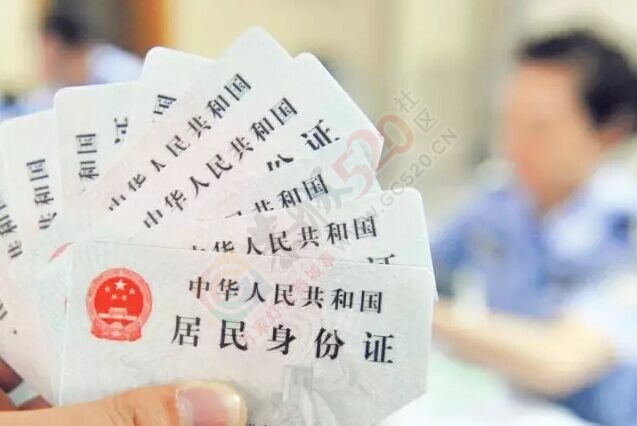 民共和国
中华人民共和国
中华人民共和国
份证
中华人民共和国
证
中华人民共和国
证
中华人民共和国
居民身份证
520社区
GC520.CN